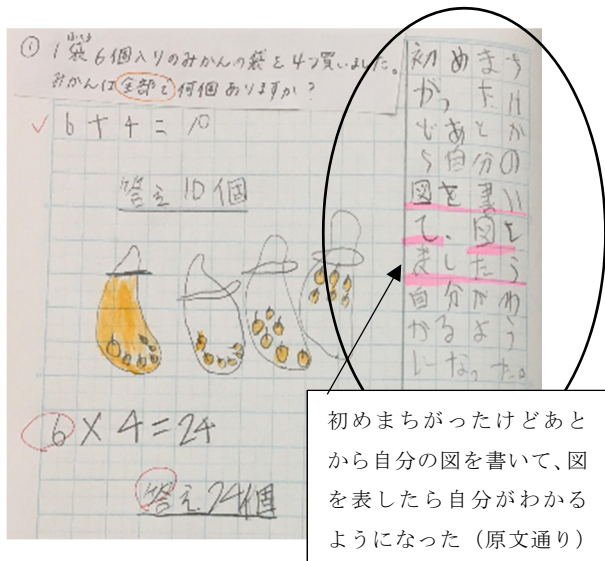 ① 1袋6個入りのみかんの袋を4つ買いました。
ふくろ
みかんは全部で何個ありますか?
6+4=10
答え10個
6×4=24
答え24個
初めまち
がったけ
どあとか
ら自分の
図を書い
て、図を
ましたう
自分がわ
かるよう
になった。
初めまちがったけどあと
から自分の図を書いて、図
を表したら自分がわかる
ようになった(原文通り)